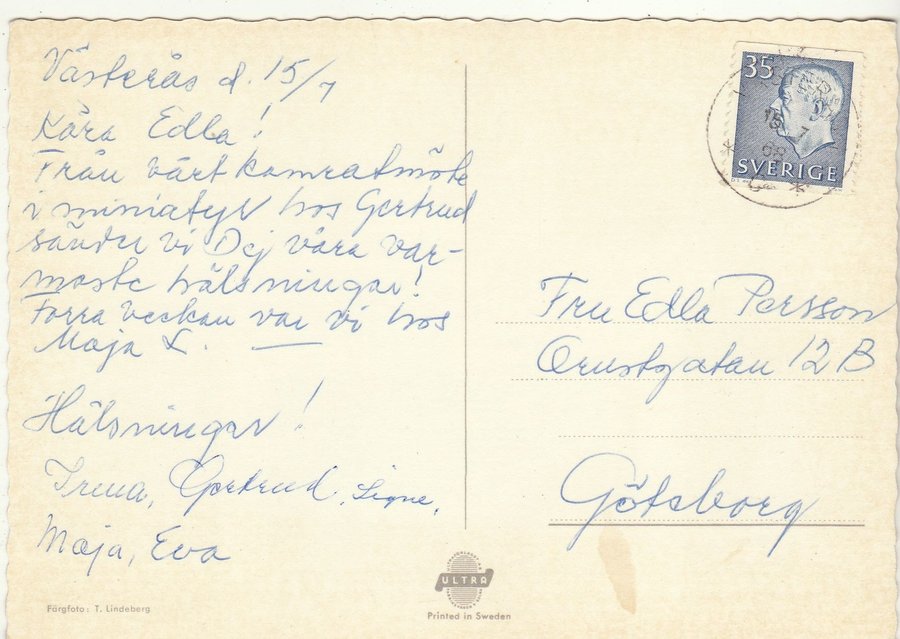 Västerås d. 15/7
Kära Edla!
Från vårt kamratmöte
i miniatyr hos Gertrud
sänder vi Dej våra var-
maste hälsningar!
Förra veckan var vi hos
Maja L.
Hälsningar!
Irma, Gertrud, Signe,
Maja, Eva
Färgfoto: T. Lindeberg
35
SVERIGE
15 7
Fru Edla Persson
Orustgatan 12 B
Göteborg
ULTRA
Printed in Sweden